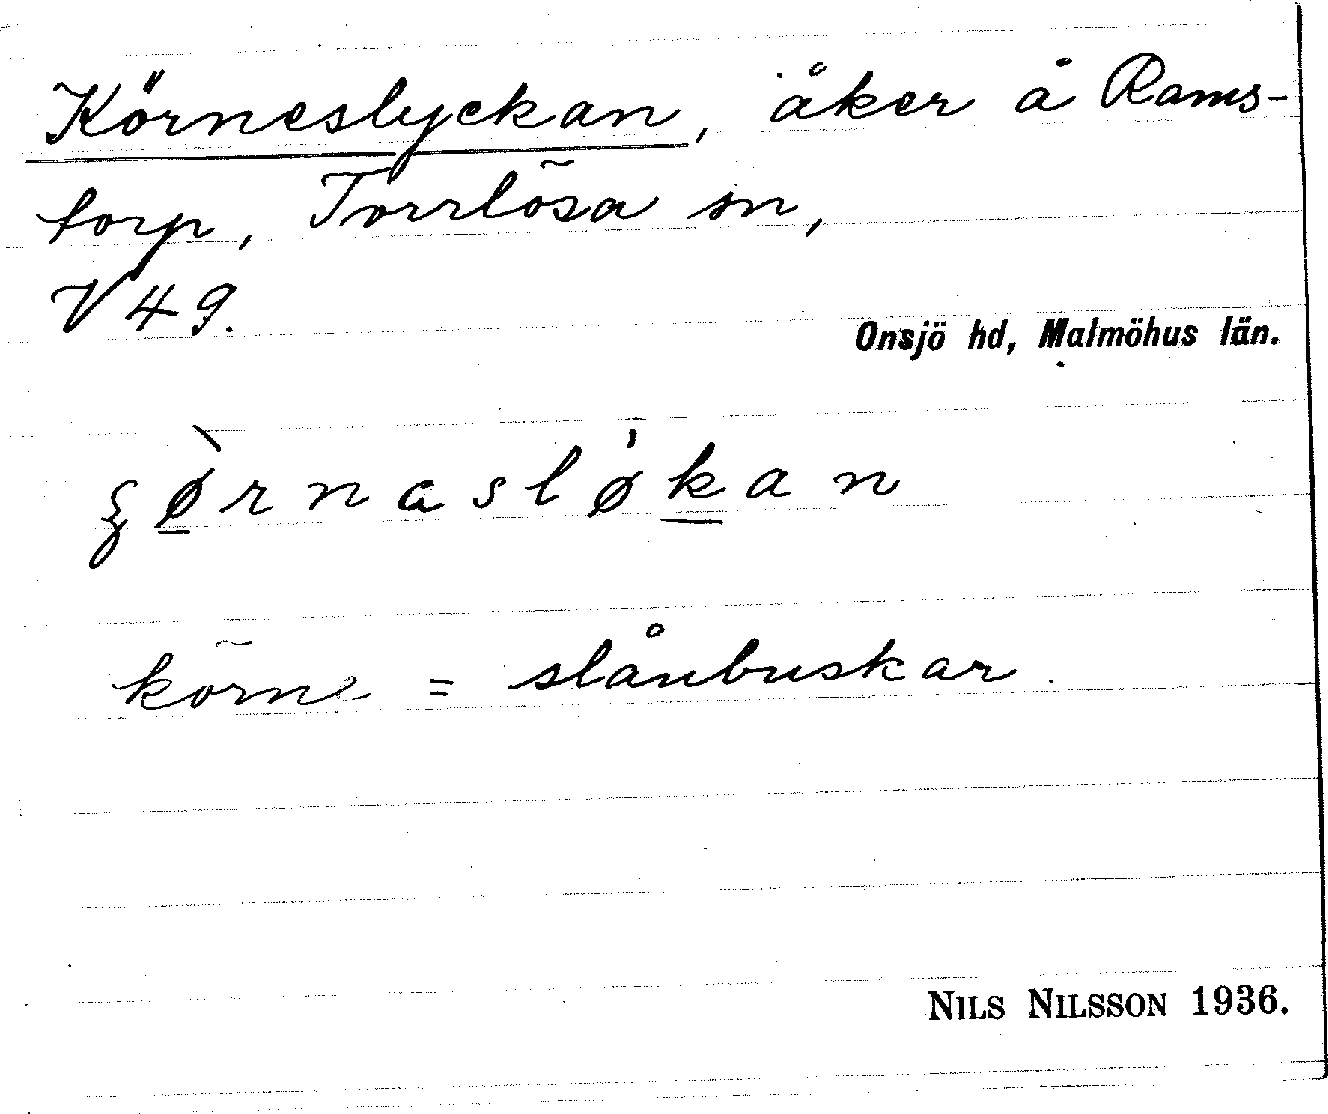 Körneslyckan, åker å Rams-
torp, Torrlösa sn,
V 49.
Onsjö hd, Malmöhus län.
ξø̀rnaslǿkan
körne = slånbuskar.
NILS NILSSON 1936.